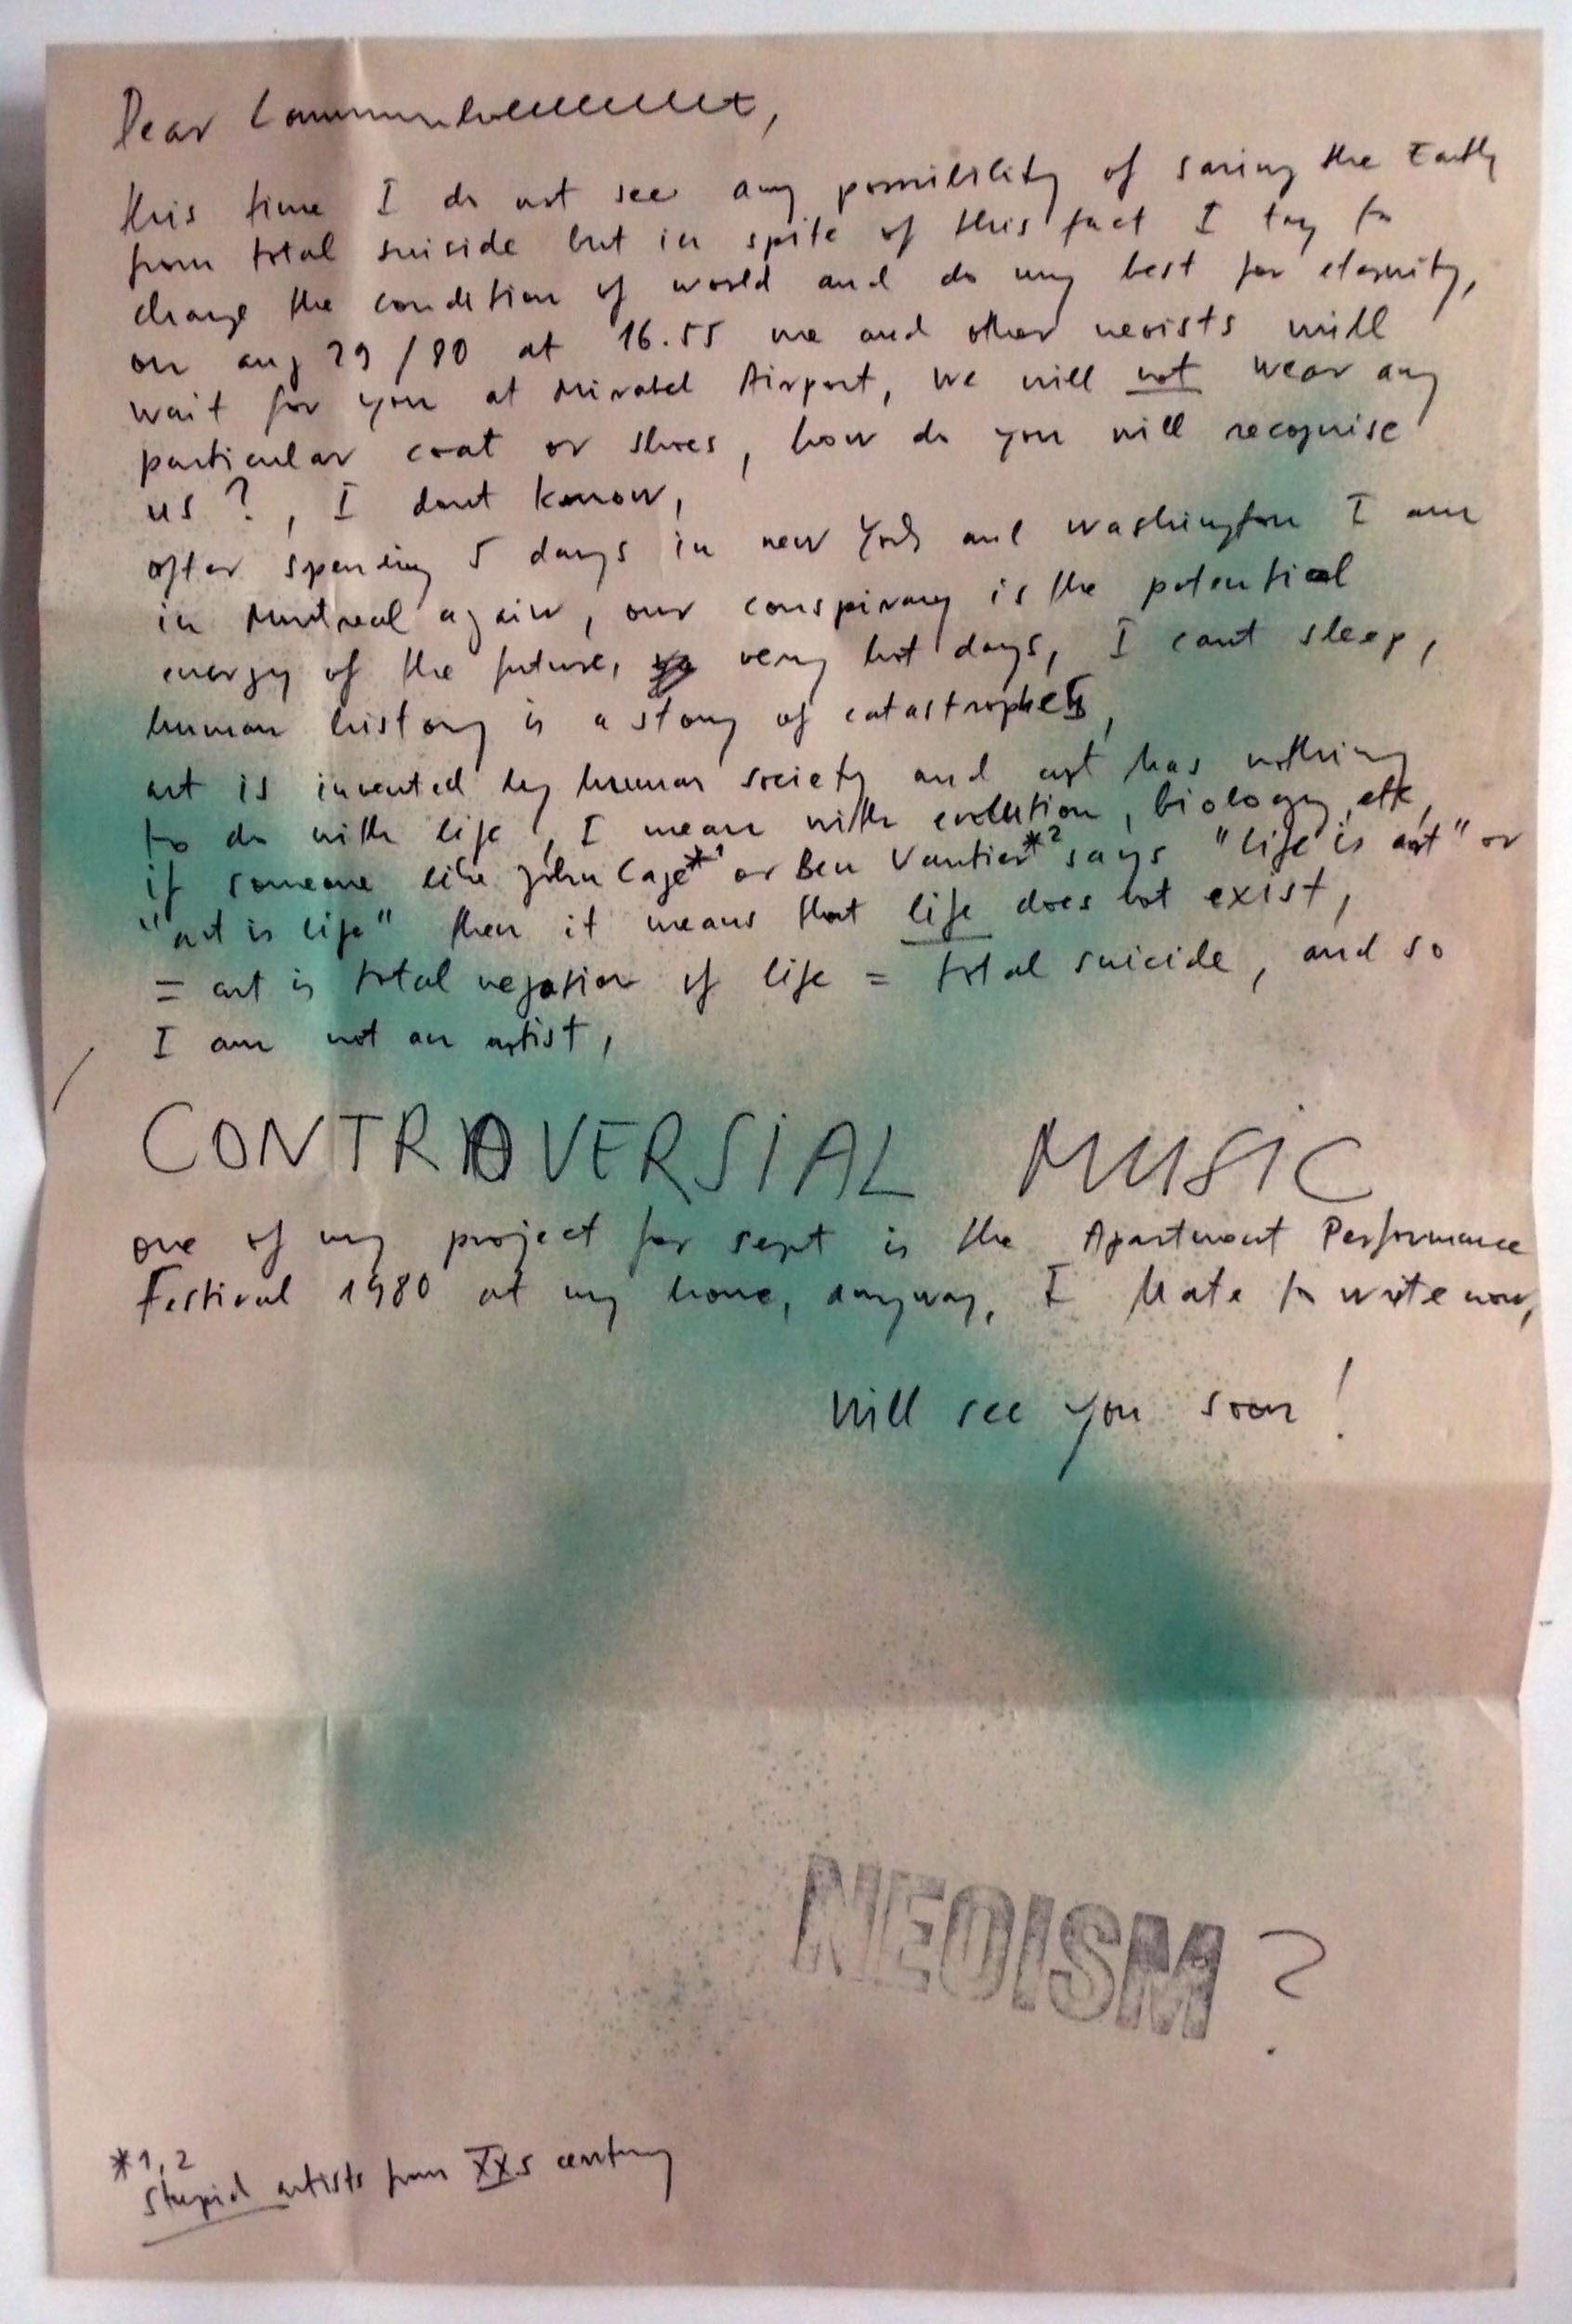 Dear
this time I do not see any possibility of saving the Earth
from total suicide but in spite of this fact I try to
change the condition of world and do my best for eternity,
on aug 29/80 at 16.55 me and other neoists will
wait for you at Mirabel Airport, we will not wear any
particular coat or shoes, how do you will recognise
us?, I dont know,
after spending 5 days in new York and washington I am
in Montreal again, our conspiracy is the potential
energy of the future, very hot days, I cant sleep,
human history is a story of catastrophes,
art is invented by human society and art has nothing
to do with life, I mean with evolution, biology, etc,
if someone like John Cage*1 or Ben Vautier*2 says "life is art" or
"art is life" then it means that life does not exist,
= art is total negation of life = total suicide, and so
I am not an artist,
CONTROVERSIAL MUSIC
one of my project for sept is the Apartment Performance
Festival 1980 at my home, anyway, I hate to write now,
will see you soon!
NEOISM?
*1,2
stupid artists from XXs century